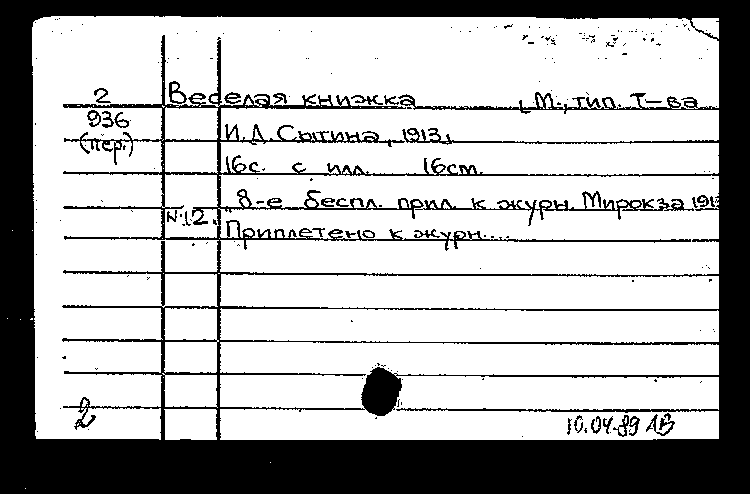 2 Веселая книжка [М., тип. Т-ва
936 И.Д. Сытина, 1913]
(пер.)
16с. с илл. 16см.
8-е беспл. прил. к журн. Мирок за 191
N.12.
Приплетено к журн....
2 10.04.89 АВ